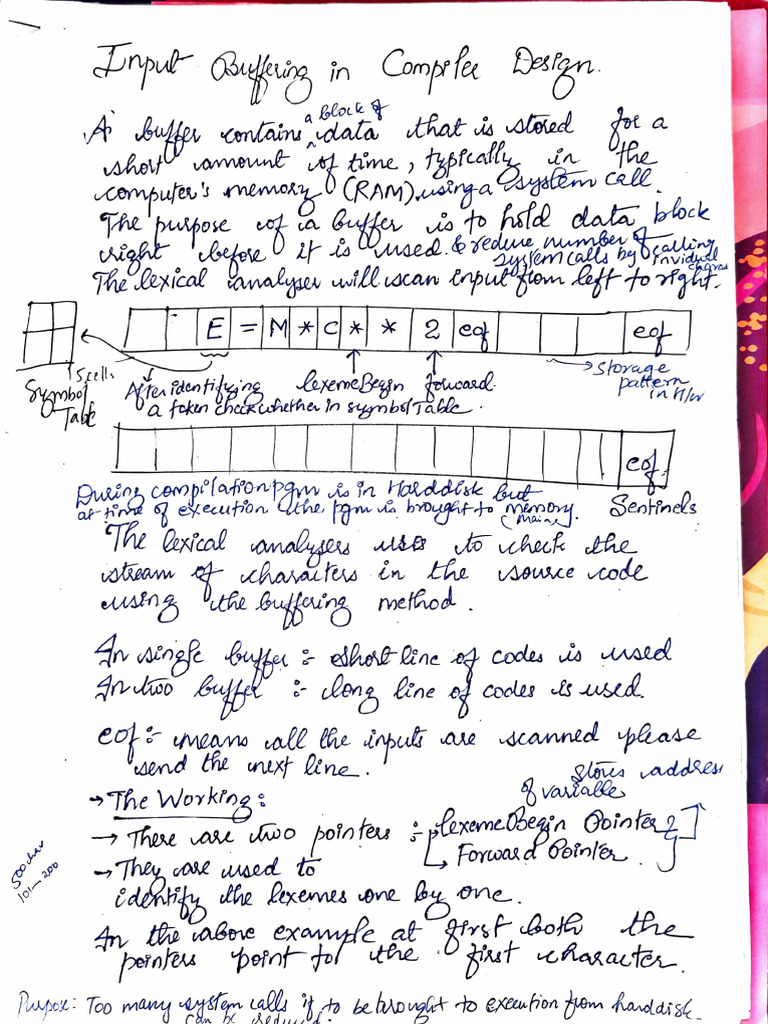 Input Buffering in Compiler Design.
A buffer contains a block of data that is stored for a
short amount of time, typically in the
computer's memory (RAM) using a system call.
The purpose of a buffer is to hold data block
right before it is used. & reduce number of
system calls by calling
invidual
The lexical analyser will scan input from left to right.
E = M * C * * 2 eof eof
5 cells
Symbol
Table
After identifying lexemeBegin forward
a token check whether in symbol Table.
storage
pattern
in H/w
eof
During compilation pgm is in Harddisk but
at time of execution the pgm is brought to memory.
(main)
Sentinels
The lexical analysers use to check the
stream of characters in the source code
using the buffering method.
In single buffer :- short line of codes is used
In two buffer :- long line of codes is used.
eof :- means all the inputs are scanned please
send the next line.
stores address
of variable
→ The Working:
→ There are two pointers :- lexemeBegin Pointer
Forward Pointer
→ They are used to
identify the lexemes one by one.
500 char
101-200
In the above example at first both the
pointers point to the first character.
Purpose: Too many system calls if to be brought to execution from harddisk.
can be reduced.